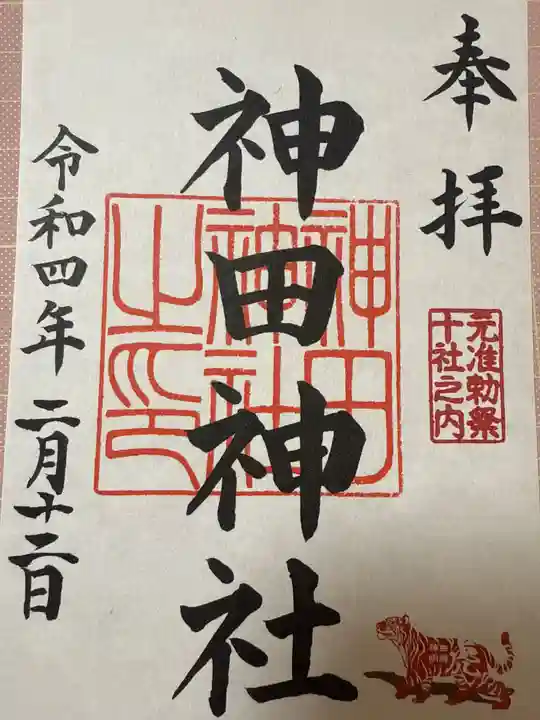 奉拝
元准勅祭
十社之内
神田神社
神田
神社
之印
令和四年二月十二日